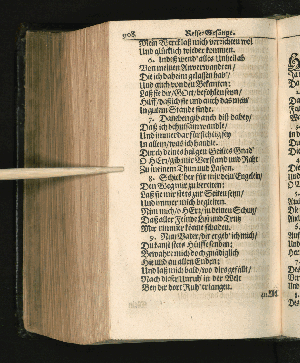 908 Reise-Gesänge.
Mein Werck laß mich verrichten wol
Und glücklich wieder kommen.
6. Indeß wend' alles Unheil ab
Von meinen Anverwandten/
Die ich daheim gelassen hab'/
Und auch von den Bekanten;
Laß sie dir/ GOtt/ befohlen seyn/
Hilff/ daß ich sie und auch das mein'
In gutem Stande finde.
7. Daneben gib auch diß dabey/
Daß ich behutsam wandle/
Und immerdar fürsichtig sey
In allem/ was ich handle.
Durch deines heilgen Geistes Grad'
O HErr/ gib mir Verstand und Raht
Zu meinem Thun und Lassen.
8. Schick' her für mir dein' Engelein/
Den Weg mir zu bereiten:
Laß sie mir stets zur Seiten seyn/
Und immer mich begleiten.
Nim mich/ o HErr/ in deinen Schutz/
Daß aller Feinde List und Trutz
Mir nimmer könne schaden.
9. Nun Vater/ dir ergeb' ich mich/
Du kanst stets Hülffe senden;
Bewahre mich doch gnädiglich
Hie und an allen Enden;
Und laß mich bald/ wo dirs gefällt/
Nach dieser Unruh in der Welt
Bey dir dort Ruh' erlangen.